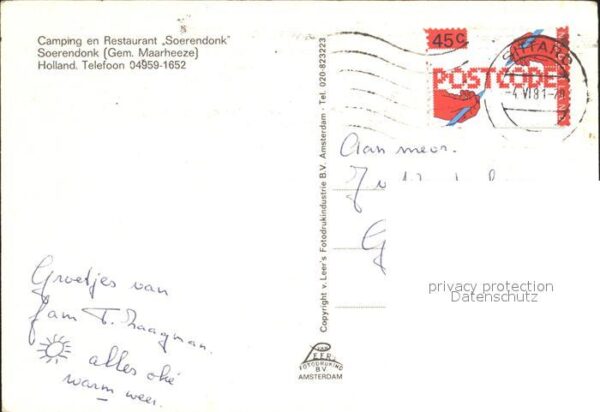 Camping en Restaurant „Soerendonk"
Soerendonk (Gem. Maarheeze)
Holland. Telefoon 04959-1652
45c
POSTCODE
SITTARD
-4.VI.81-
Copyright v. Leer's Fotodrukindustrie B.V. Amsterdam - Tel. 020-823223
Aan
G
privacy protection
Datenschutz
Groetjes van
fam T. Zaagman.
alles oké
warm weer.
VAN
LEER
FOTODRUKIND
B.V.
AMSTERDAM